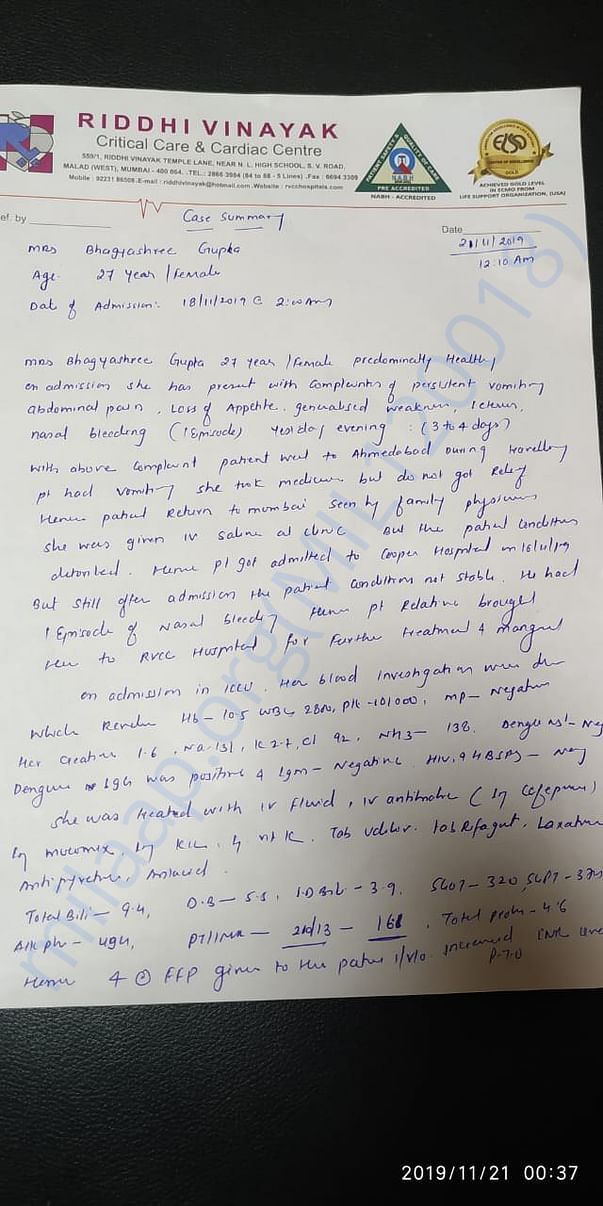 RIDDHI VINAYAK
Critical Care & Cardiac Centre
559/1, RIDDHI VINAYAK TEMPLE LANE, NEAR N. L. HIGH SCHOOL, S. V. ROAD,
MALAD (WEST), MUMBAI - 400 064. .TEL.: 2866 3984 (84 to 88 - 5 Lines) .Fax : 6694 3309
Mobile : 92231 86506 .E-mail : riddhivinayak@hotmail.com .Website : rvcchospitals.com
PATIENT SAFETY & QUALITY OF CARE
N.A.B.H
PRE ACCREDITED
NABH - ACCREDITED
ELSO
CENTER OF EXCELLENCE
GOLD
ACHIEVED GOLD LEVEL
IN ECMO FROM
LIFE SUPPORT ORGANIZATION, (USA)
ef. by
Case Summary
Date
21/11/2019
12:10 Am
Mrs Bhagyashree Gupta
Age. 27 Year / Female
Dat of Admission: 18/11/2019 @ 2:00 Am
Mrs Bhagyashree Gupta 27 year / Female predominally Healthy
on admission she has present with complaints of persistent vomiting
abdominal pain, Loss of Appetite, generalised weakness,
nasal bleeding (1 Episode) yesterday evening : (3 to 4 days)
with above complaint patient went to Ahmedabad During travelling
pt had vomiting she took medicine but do not got Relief
Hence patient Return to mumbai seen by family physician
she was given IV saline at clinic But the patient condition
. Hence pt got admitted to Cooper Hospital on 16/11/19
But still after admission the patient condition not stable. He had
1 Episode of Nasal bleeding Hence pt Relative brought
Her to RVCC Hospital for Further treatment &
on admission in ICCU. Her blood Investigation were
which Hb - 10.5 WBC 2800, Plt - 101000, MP - Negative
Her Creatine 1.6, Na 131, K 2.7, Cl 92, NH3 - 138. Dengue NS1 - Neg
Dengue IgG was positive & Igm - Negative. HIV, - Neg
she was treated with IV Fluid, IV antibiotic (Inj
Inj mucomix, Inj KCL, Inj Vit K. Tab Udiliv. Tab Rifagut, Laxative
Antipyretic, Antacid.
Total Bili - 9.4, D.B - 5.5, I.D Bili - 3.9, SGOT - 320, SGPT -
Alk ph - 494, PT/INR - - , Total protein - 4.6
Hence 4 FFP given to the patient i/v/o increased INR level
milaap.org(MIL120018)
2019/11/21 00:37